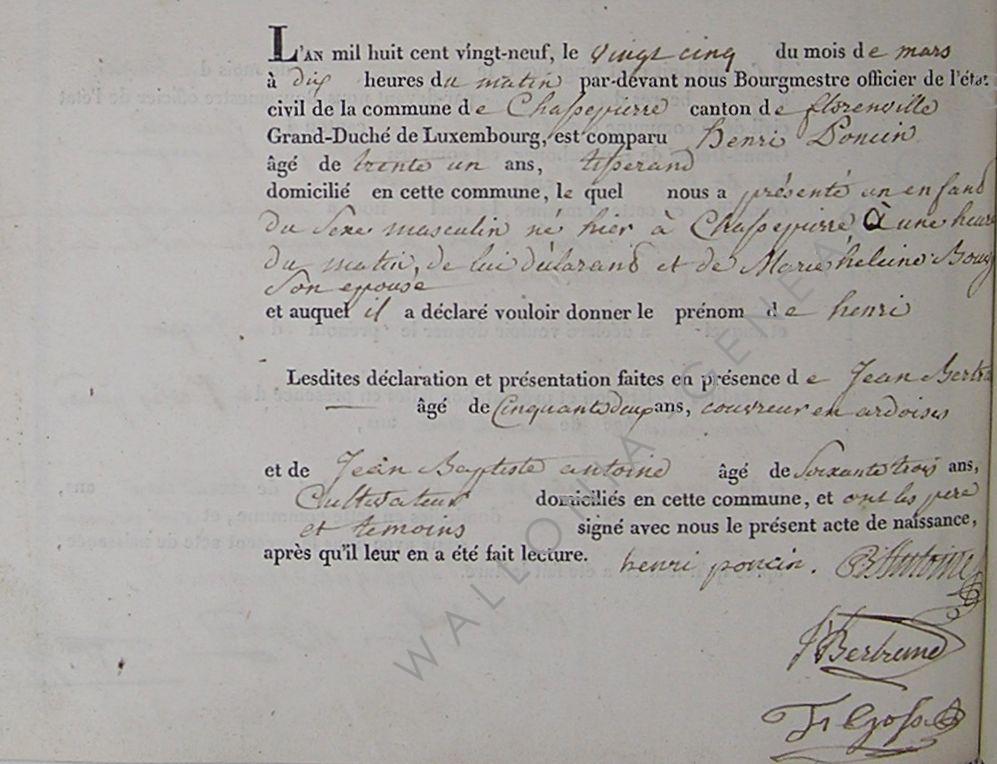 L'AN mil huit cent vingt-neuf, le vingt cinq du mois de mars
à dix heures du matin par-devant nous Bourgmestre officier de l'état
civil de la commune de Chassepierre canton de florenville
Grand-Duché de Luxembourg, est comparu henri Poncin
âgé de trente un ans, tisserand
domicilié en cette commune, le quel nous a présenté un enfand
du Sexe masculin né hier à Chassepierre à une heure
du matin, de lui déclarand et de Marie héleine
Son epouse
et auquel il a déclaré vouloir donner le prénom de henri
Lesdites déclaration et présentation faites en présence de Jean Bertra
âgé de Cinquante deux ans, couvreur en ardoises
et de Jean Baptiste antoine âgé de Soixante trois ans,
Cultivateur domiciliés en cette commune, et ont les pere
et temoins signé avec nous le présent acte de naissance,
après qu'il leur en a été fait lecture. henri poncin. B Antoine
J Bertrand
WALLONIA GENEA